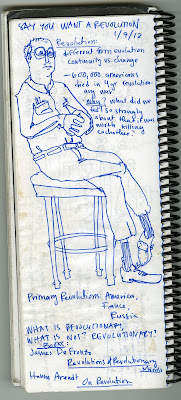 SAY YOU WANT A REVOLUTION
1/9/12
Revolution:
different from evolution
continuity vs. change
- 600,000 americans
died in 4 yr revolution-
ary war?
Why? What did we
feel so strongly
about that it was
worth killing
eachother?
Primary Revolutions: America,
France,
Russia
WHAT IS REVOLUTIONARY,
WHAT IS NOT REVOLUTIONARY?
James DeFronzo
Revolutions & Revolutionary
Hannah Arendt
On Revolution